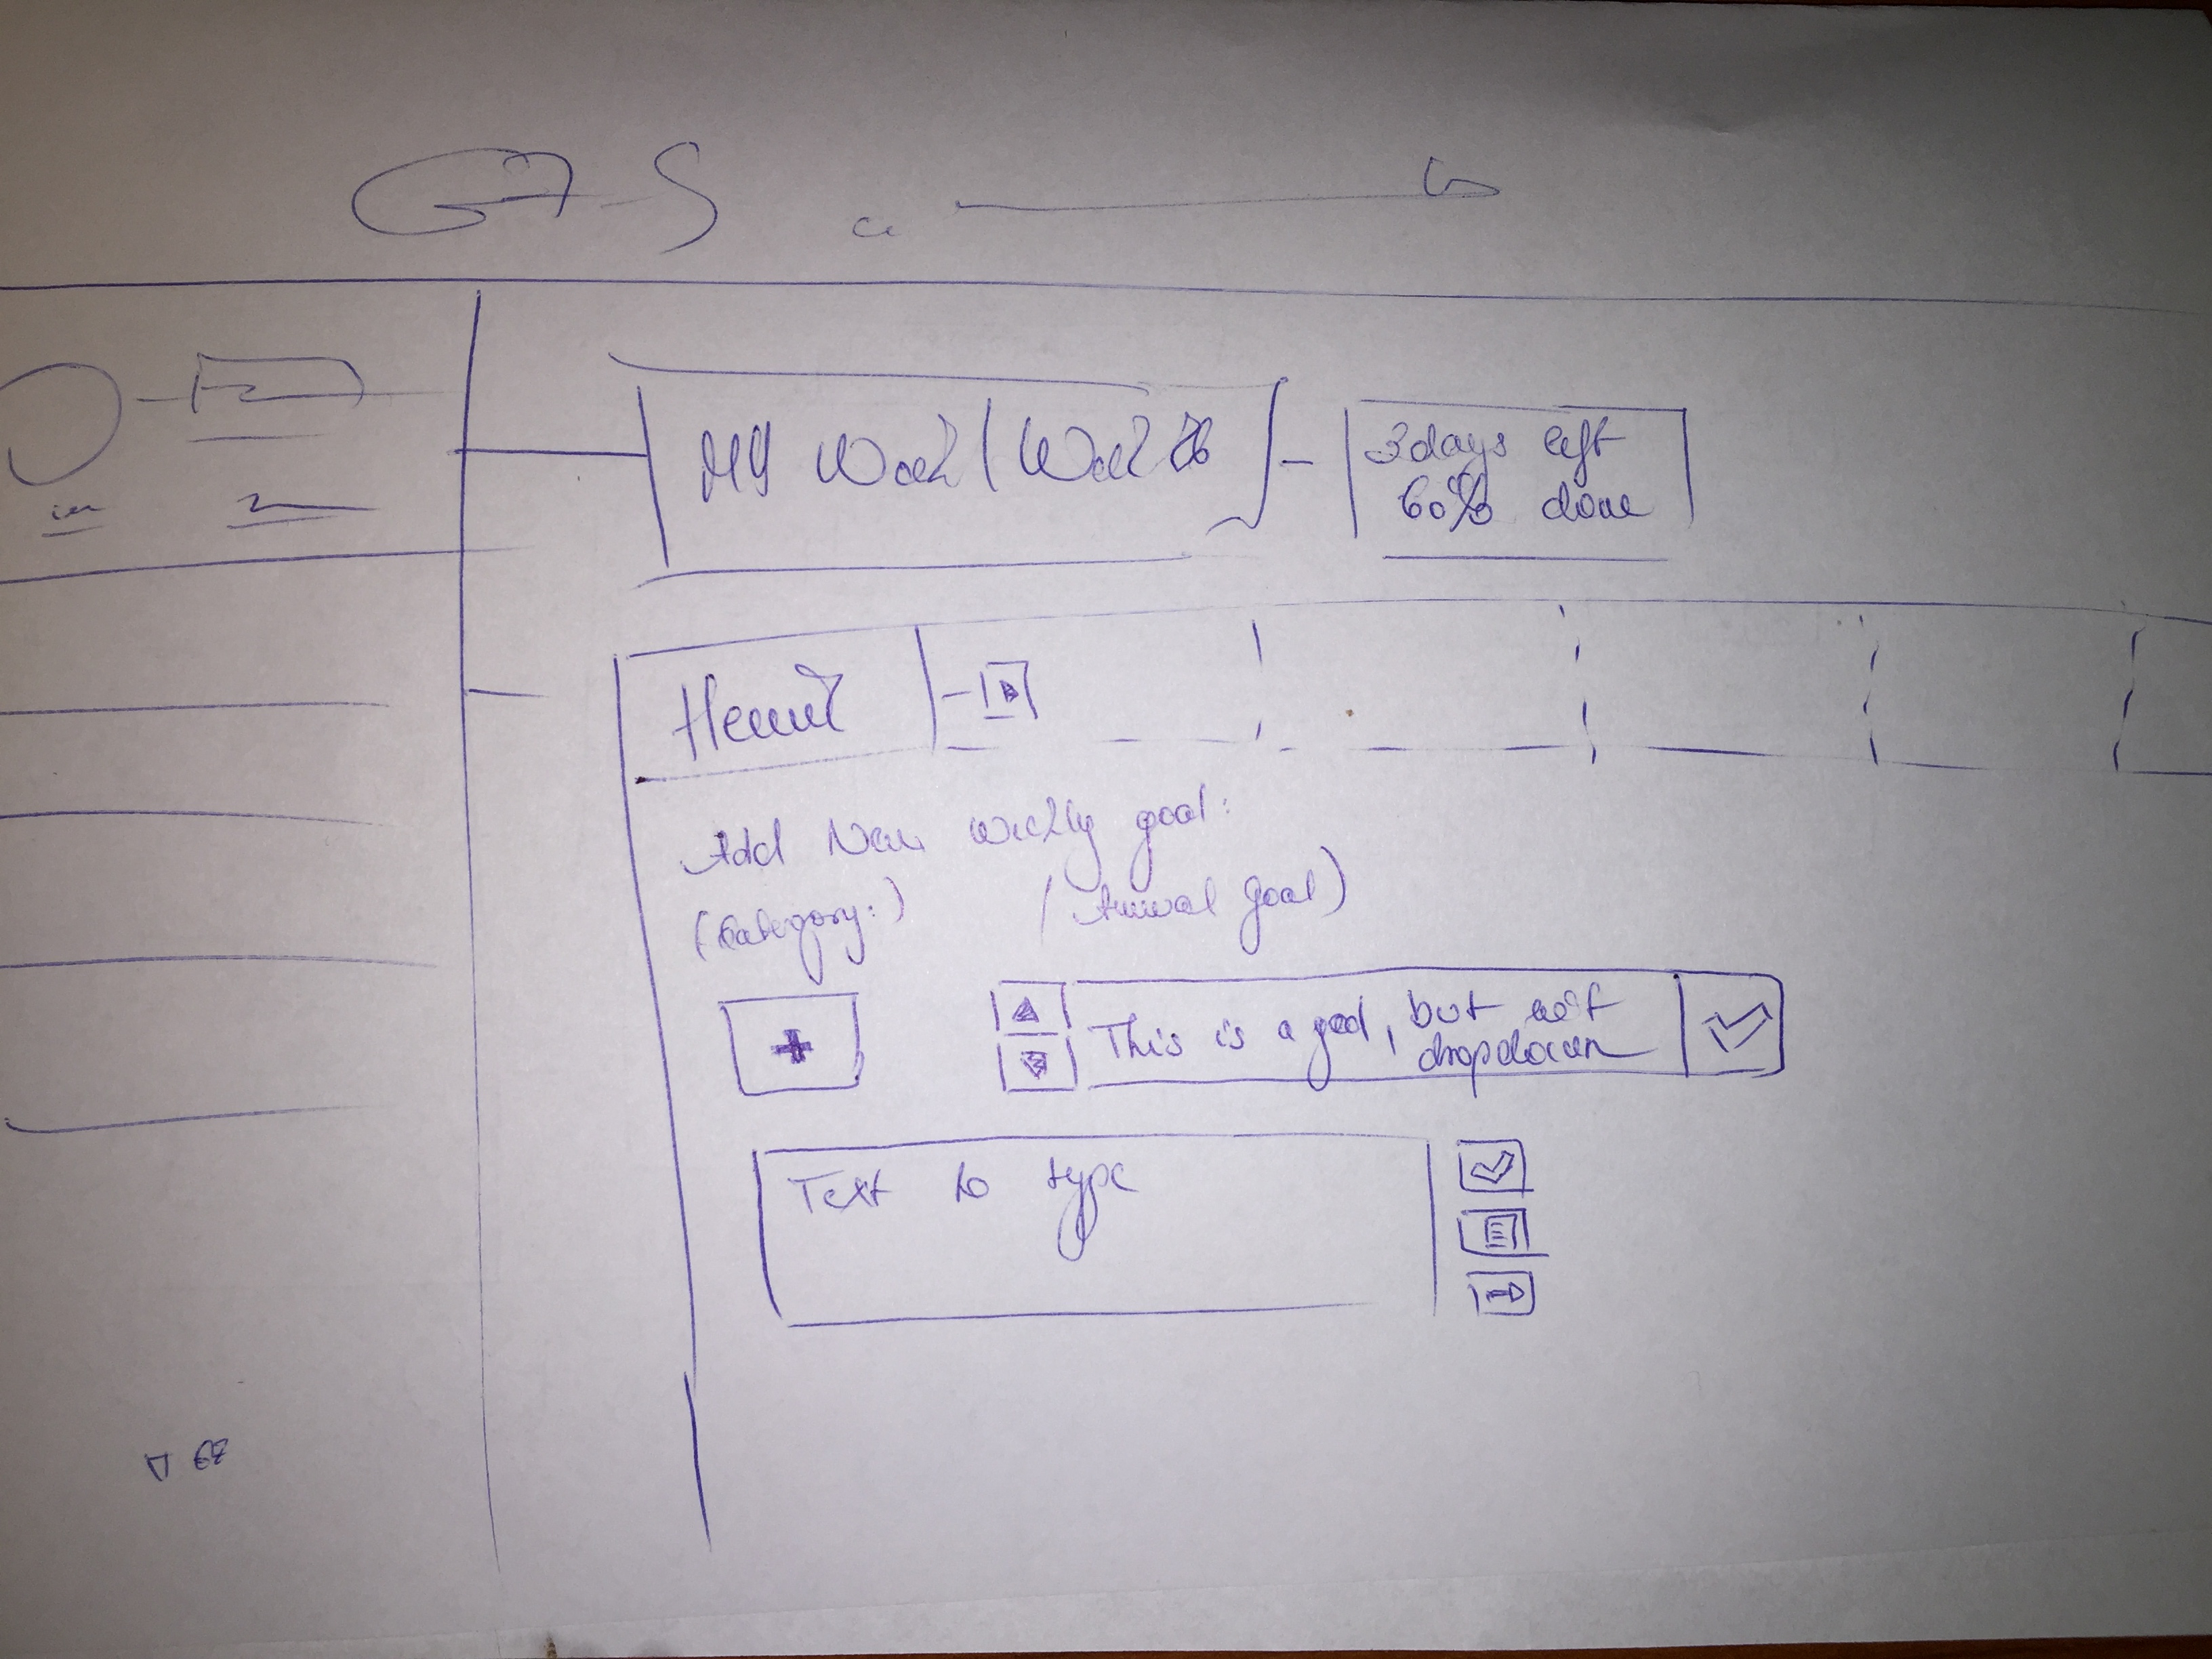 My Week | Week 26
3 days left
60% done
Add New weekly goal:
(Category:) (Annual goal)
+
This is a goal, but with
dropdown
Text to type